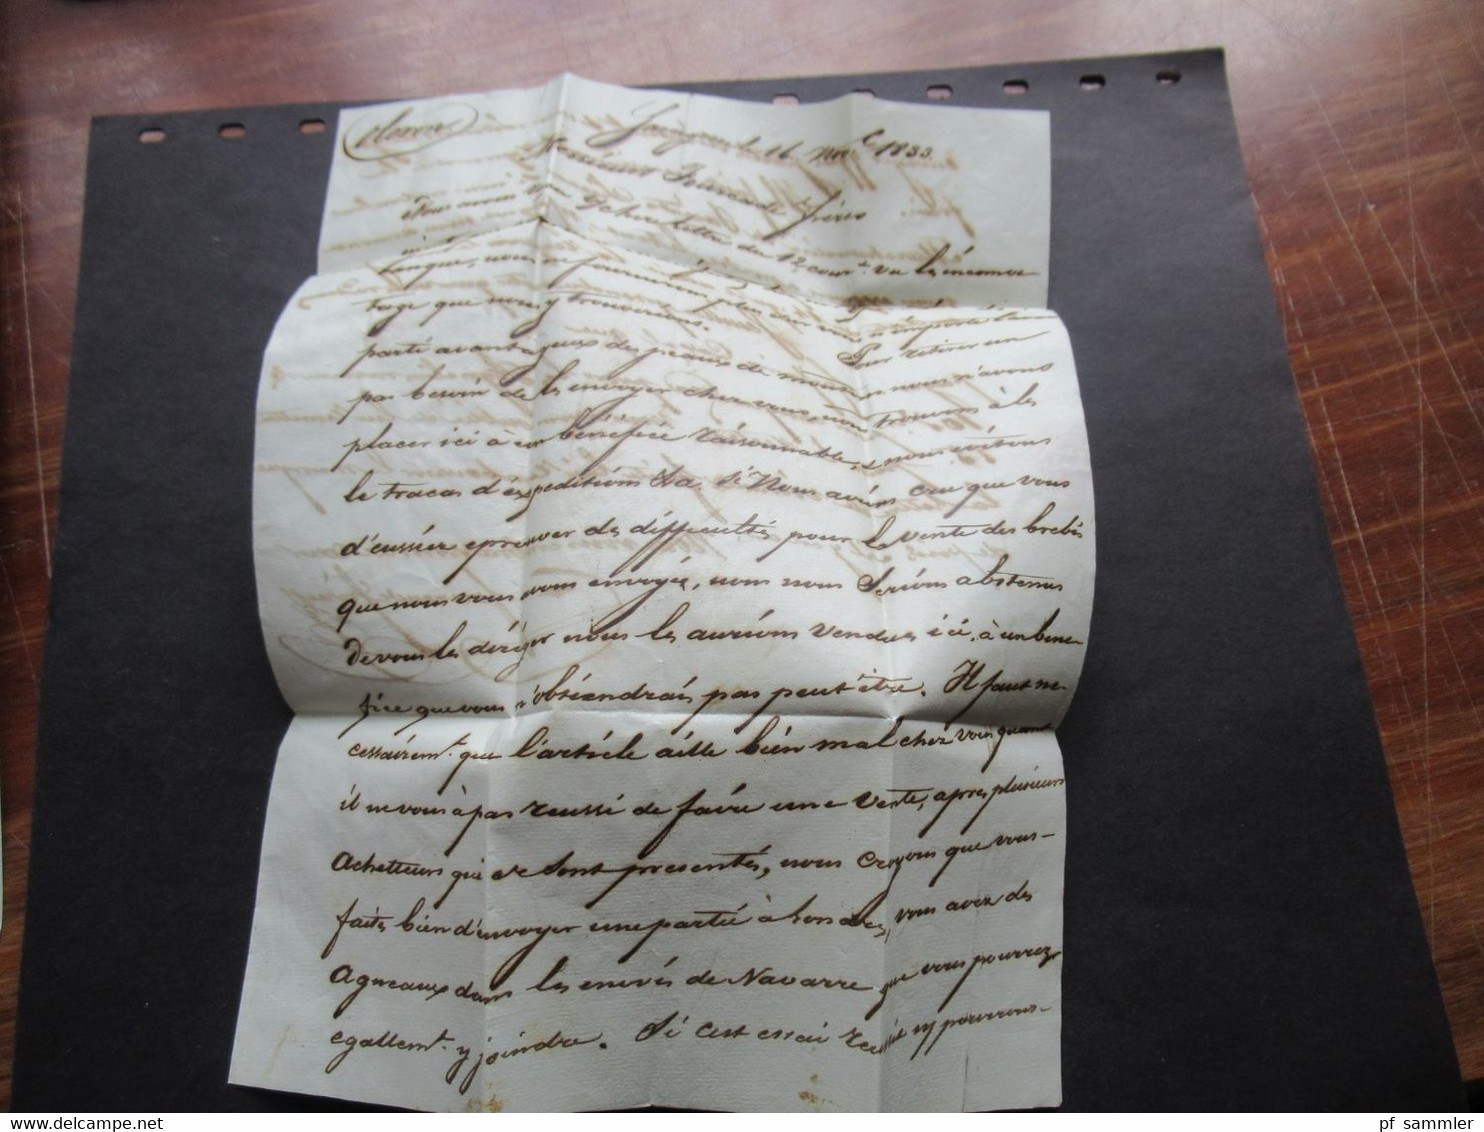 oloron
le 16 nov.e 1833.
Messieurs frères
Nous avons votre lettre du 12 cour.t vu les
que nous y trouverions. Pour retirer un
parti avantageux des peaux de nous n'avons
pas besoin de les envoyer chez vous, nous trouvons à les
placer ici à un bénéfice raisonnable, & nous évitons
le tracas d'expeditions &a. si Nous avions cru que vous
d'eussiez eprouver des difficultés pour la vente des brebis
que nous vous avons envoyée, nous nous serions abstenus
de vous les diriger nous les aurions vendues ici, à un bene-
fice que vous n'obtiendrais pas peut être. Il faut ne-
cessairem.t que l'article aille bien mal chez vous quand
il ne vous à pas reussi de faire une vente, apres plusieurs
achetteurs qui se sont presentés, nous croyons que vous
faites bien d'envoyer une partie à vous avez des
agneaux dans les envois de Navarre que vous pourrez
egallem.t y joindre. Si cest essai reussit ny pourrons-
pf sammler
DELCAMPE.NET